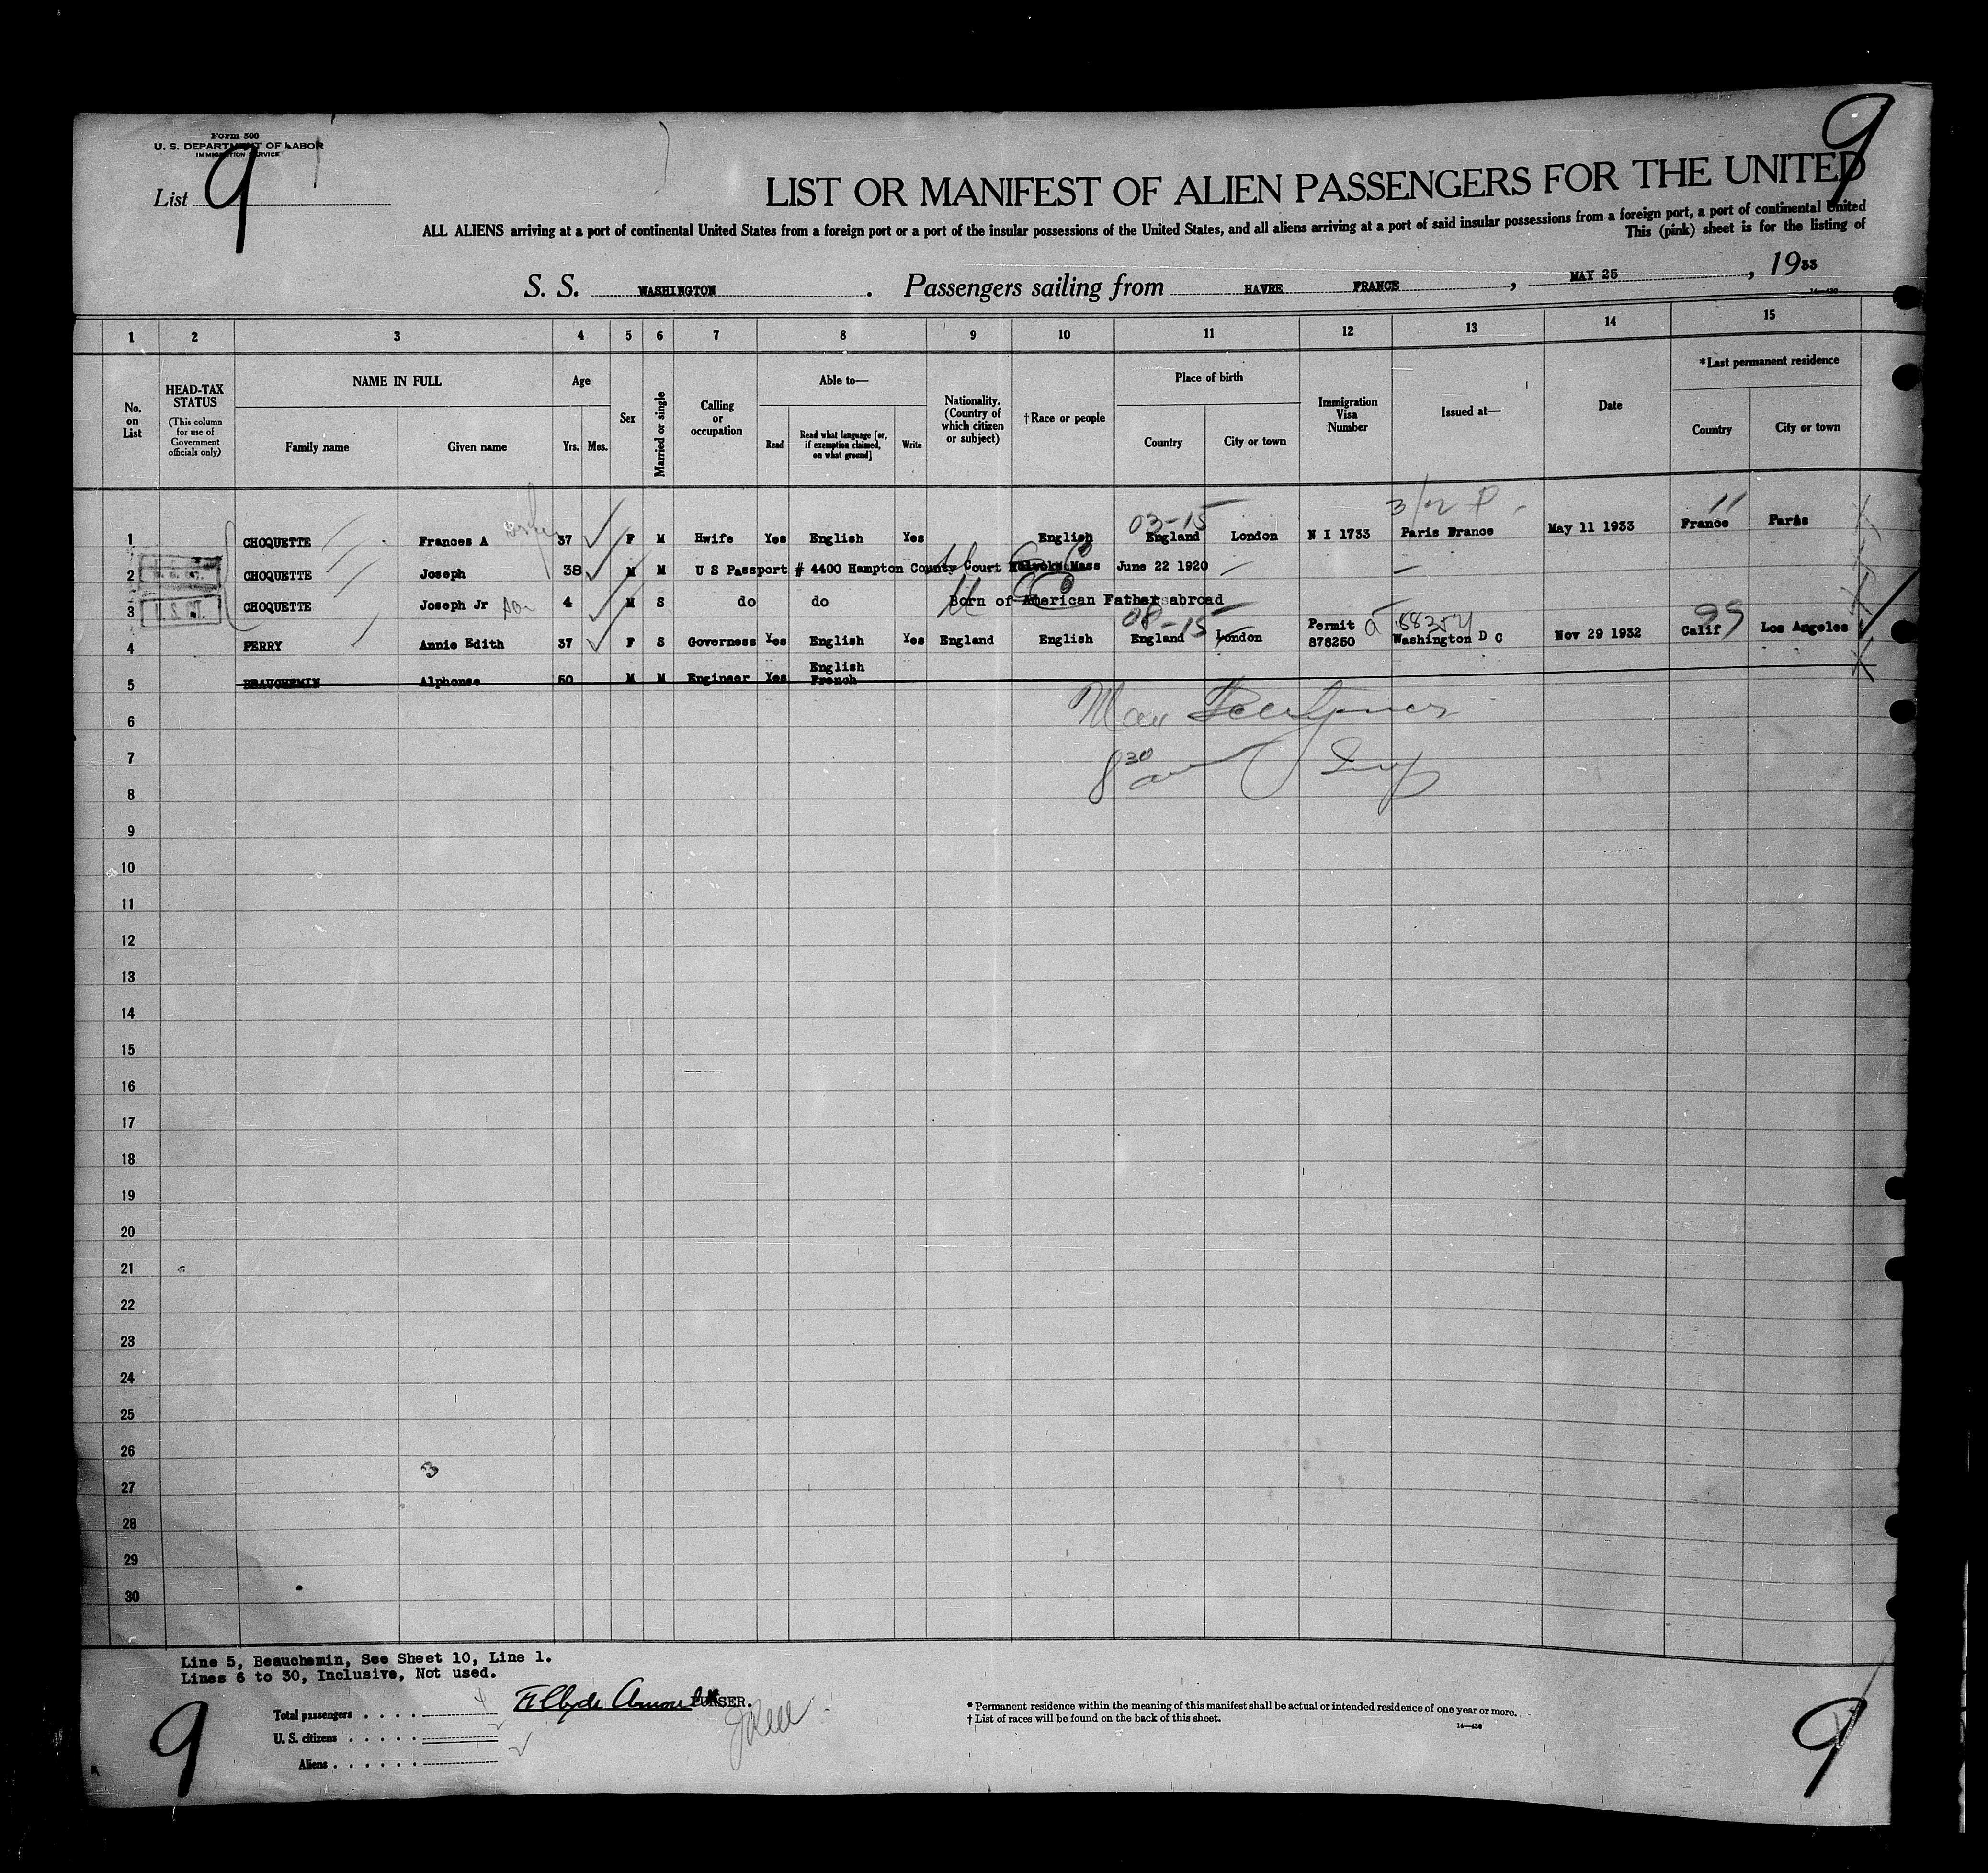 Form 500
U. S. DEPARTMENT OF LABOR
IMMIGRATION SERVICE
List 9
9
LIST OR MANIFEST OF ALIEN PASSENGERS FOR THE UNITED
ALL ALIENS arriving at a port of continental United States from a foreign port or a port of the insular possessions of the United States, and all aliens arriving at a port of said insular possessions from a foreign port, a port of continental United
This (pink) sheet is for the listing of
S. S. WASHINGTON . Passengers sailing from HAVRE FRANCE , MAY 25 , 1933
14—430
1 2 3 4 5 6 7 8 9 10 11 12 13 14 15
No. on List
HEAD-TAX STATUS (This column for use of Government officials only)
NAME IN FULL
Family name Given name
Age
Yrs. Mos.
Sex
Married or single
Calling or occupation
Able to—
Read Read what language [or, if exemption claimed, on what ground] Write
Nationality. (Country of which citizen or subject)
†Race or people
Place of birth
Country City or town
Immigration Visa Number
Issued at—
Date
*Last permanent residence
Country City or town
03-15 11
1 CHOQUETTE Frances A 37 F M Hwife Yes English Yes English England London N I 1733 Paris France May 11 1933 France Paris
2 CHOQUETTE Joseph 38 M M U S Passport # 4400 Hampton County Court Holyoke Mass June 22 1920
3 CHOQUETTE Joseph Jr son 4 M S do do Born of American Father abroad
08-15 99
4 PERRY Annie Edith 37 F S Governess Yes English Yes England English England London Permit 878250 Washington D C Nov 29 1932 Calif Los Angeles
5 BEAUCHEMIN Alphonse 50 M M Engineer Yes English French
6
7
8
9
10
11
12
13
14
15
16
17
18
19
20
21
22
23
24
25
26
27
28
29
30
3
Line 5, Beauchemin, See Sheet 10, Line 1.
Lines 6 to 30, Inclusive, Not used.
PURSER.
Total passengers . . . . 4
U. S. citizens . . . . .
Aliens . . . . . .
* Permanent residence within the meaning of this manifest shall be actual or intended residence of one year or more.
† List of races will be found on the back of this sheet.
14—430
9
9